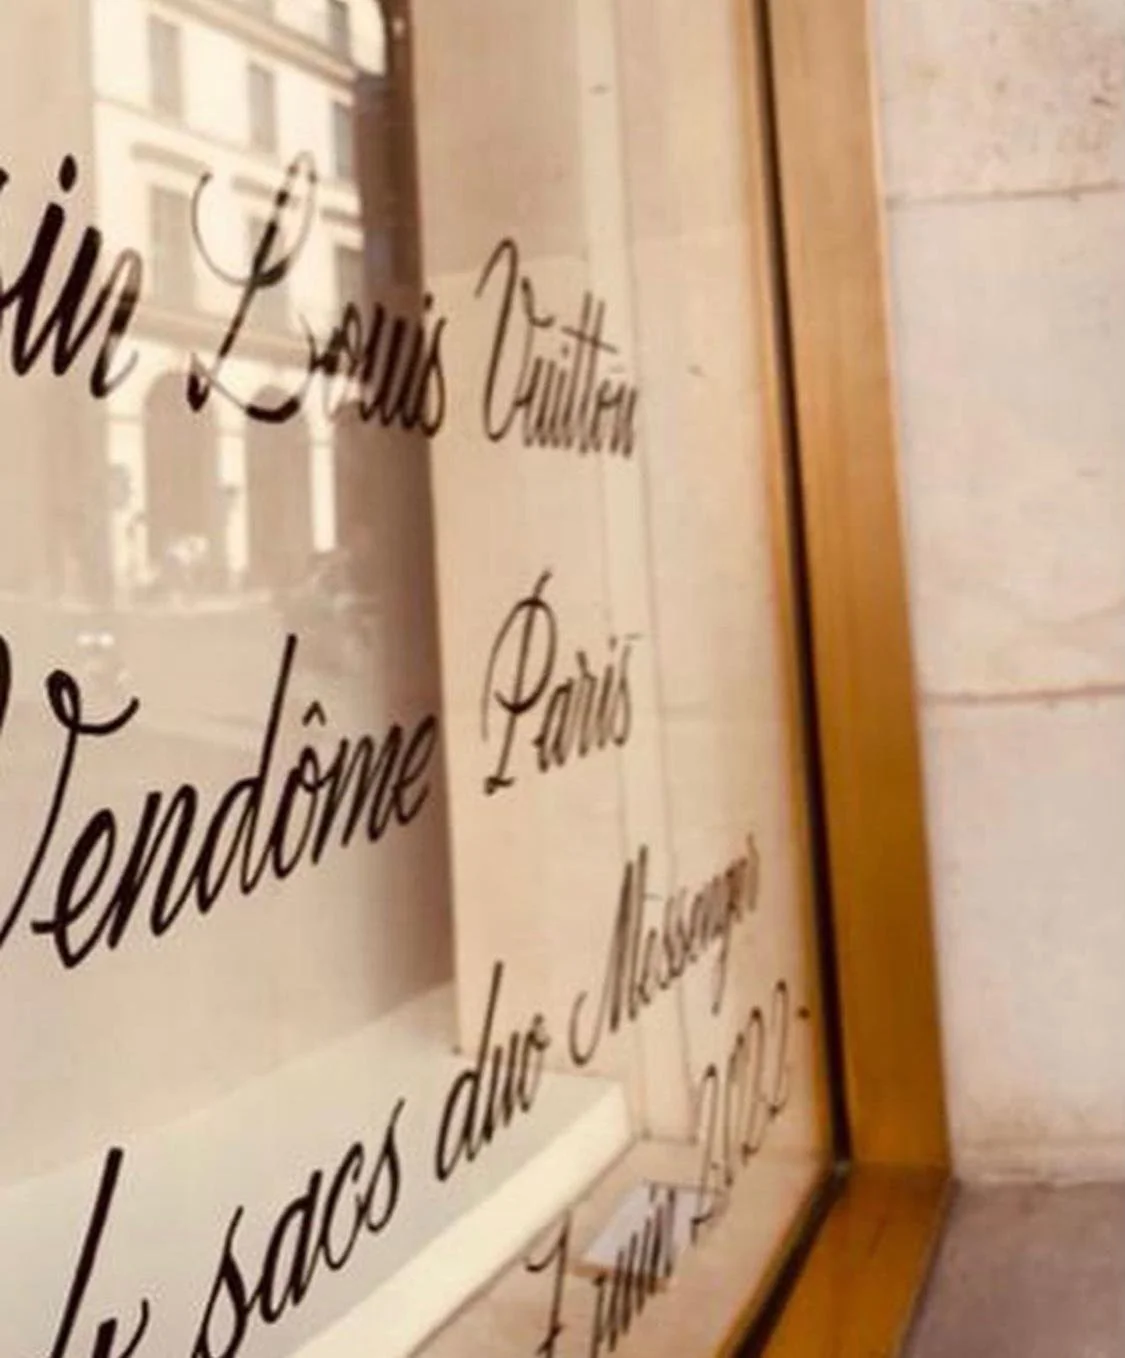 sin Louis Vuitton
Vendôme Paris
sacs duo Messenger
Juin 2022